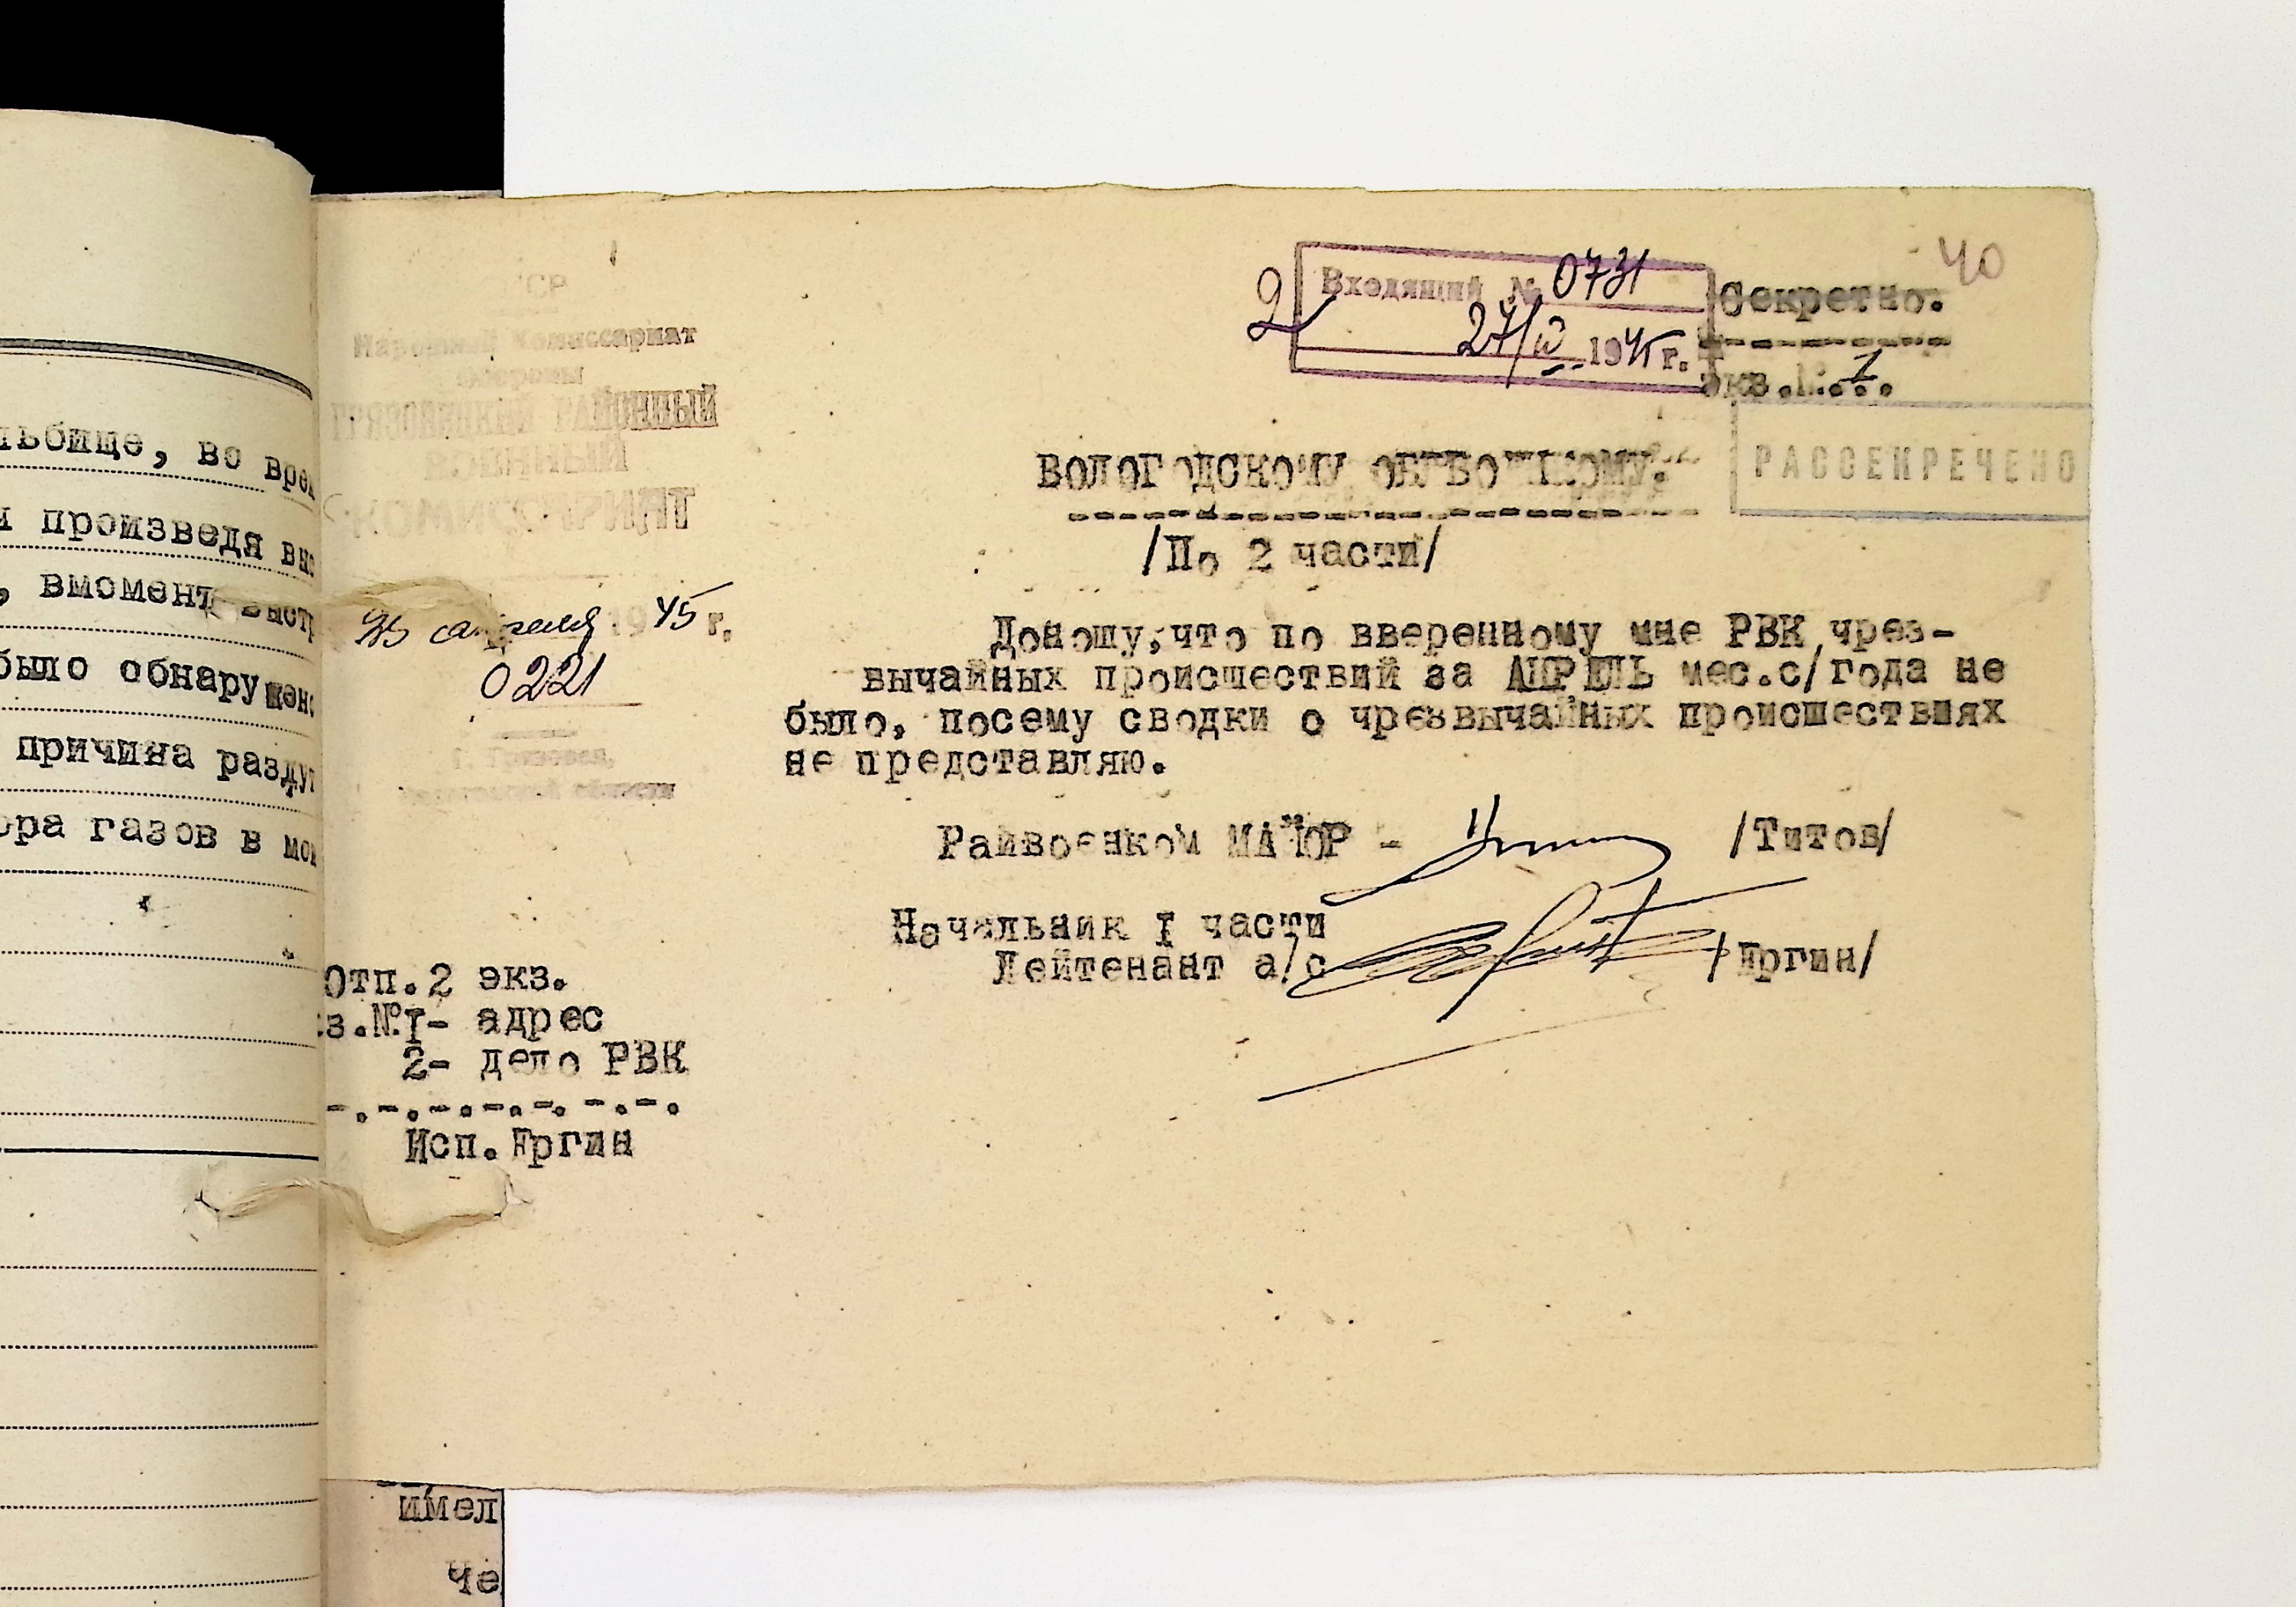 льбище, во врем
и произведя выс
, вмомент выстр
было обнаружено
причина раздут
ора газов в мом
СССР
Народный Комиссариат
Обороны
ГРЯЗОВЕЦКИЙ РАЙОННЫЙ
ВОЕННЫЙ
КОМИССАРИАТ
25 апреля 1945 г.
0221
г. Грязовец,
Вологодской области
Отп.2 экз.
з.№I- адрес
2- дело РВК
-.-.-.-.-.-.-.
Исп.Ергин
40
2
Входящий № 0731
27/IV 1945 г.
Секретно.
экз.№.1.
РАССЕКРЕЧЕНО
ВОЛОГОДСКОМУ ОБЛВОЕНКОМУ.
/По 2 части/
Доношу,что по вверенному мне РВК чрез-
вычайных происшествий за АПРЕЛЬ мес.с/года не
было, посему сводки о чрезвычайных происшествиях
не представляю.
Райвоенком МАЙОР - /Титов/
Начальник I части
Лейтенант а/с /Ергин/
имел
че